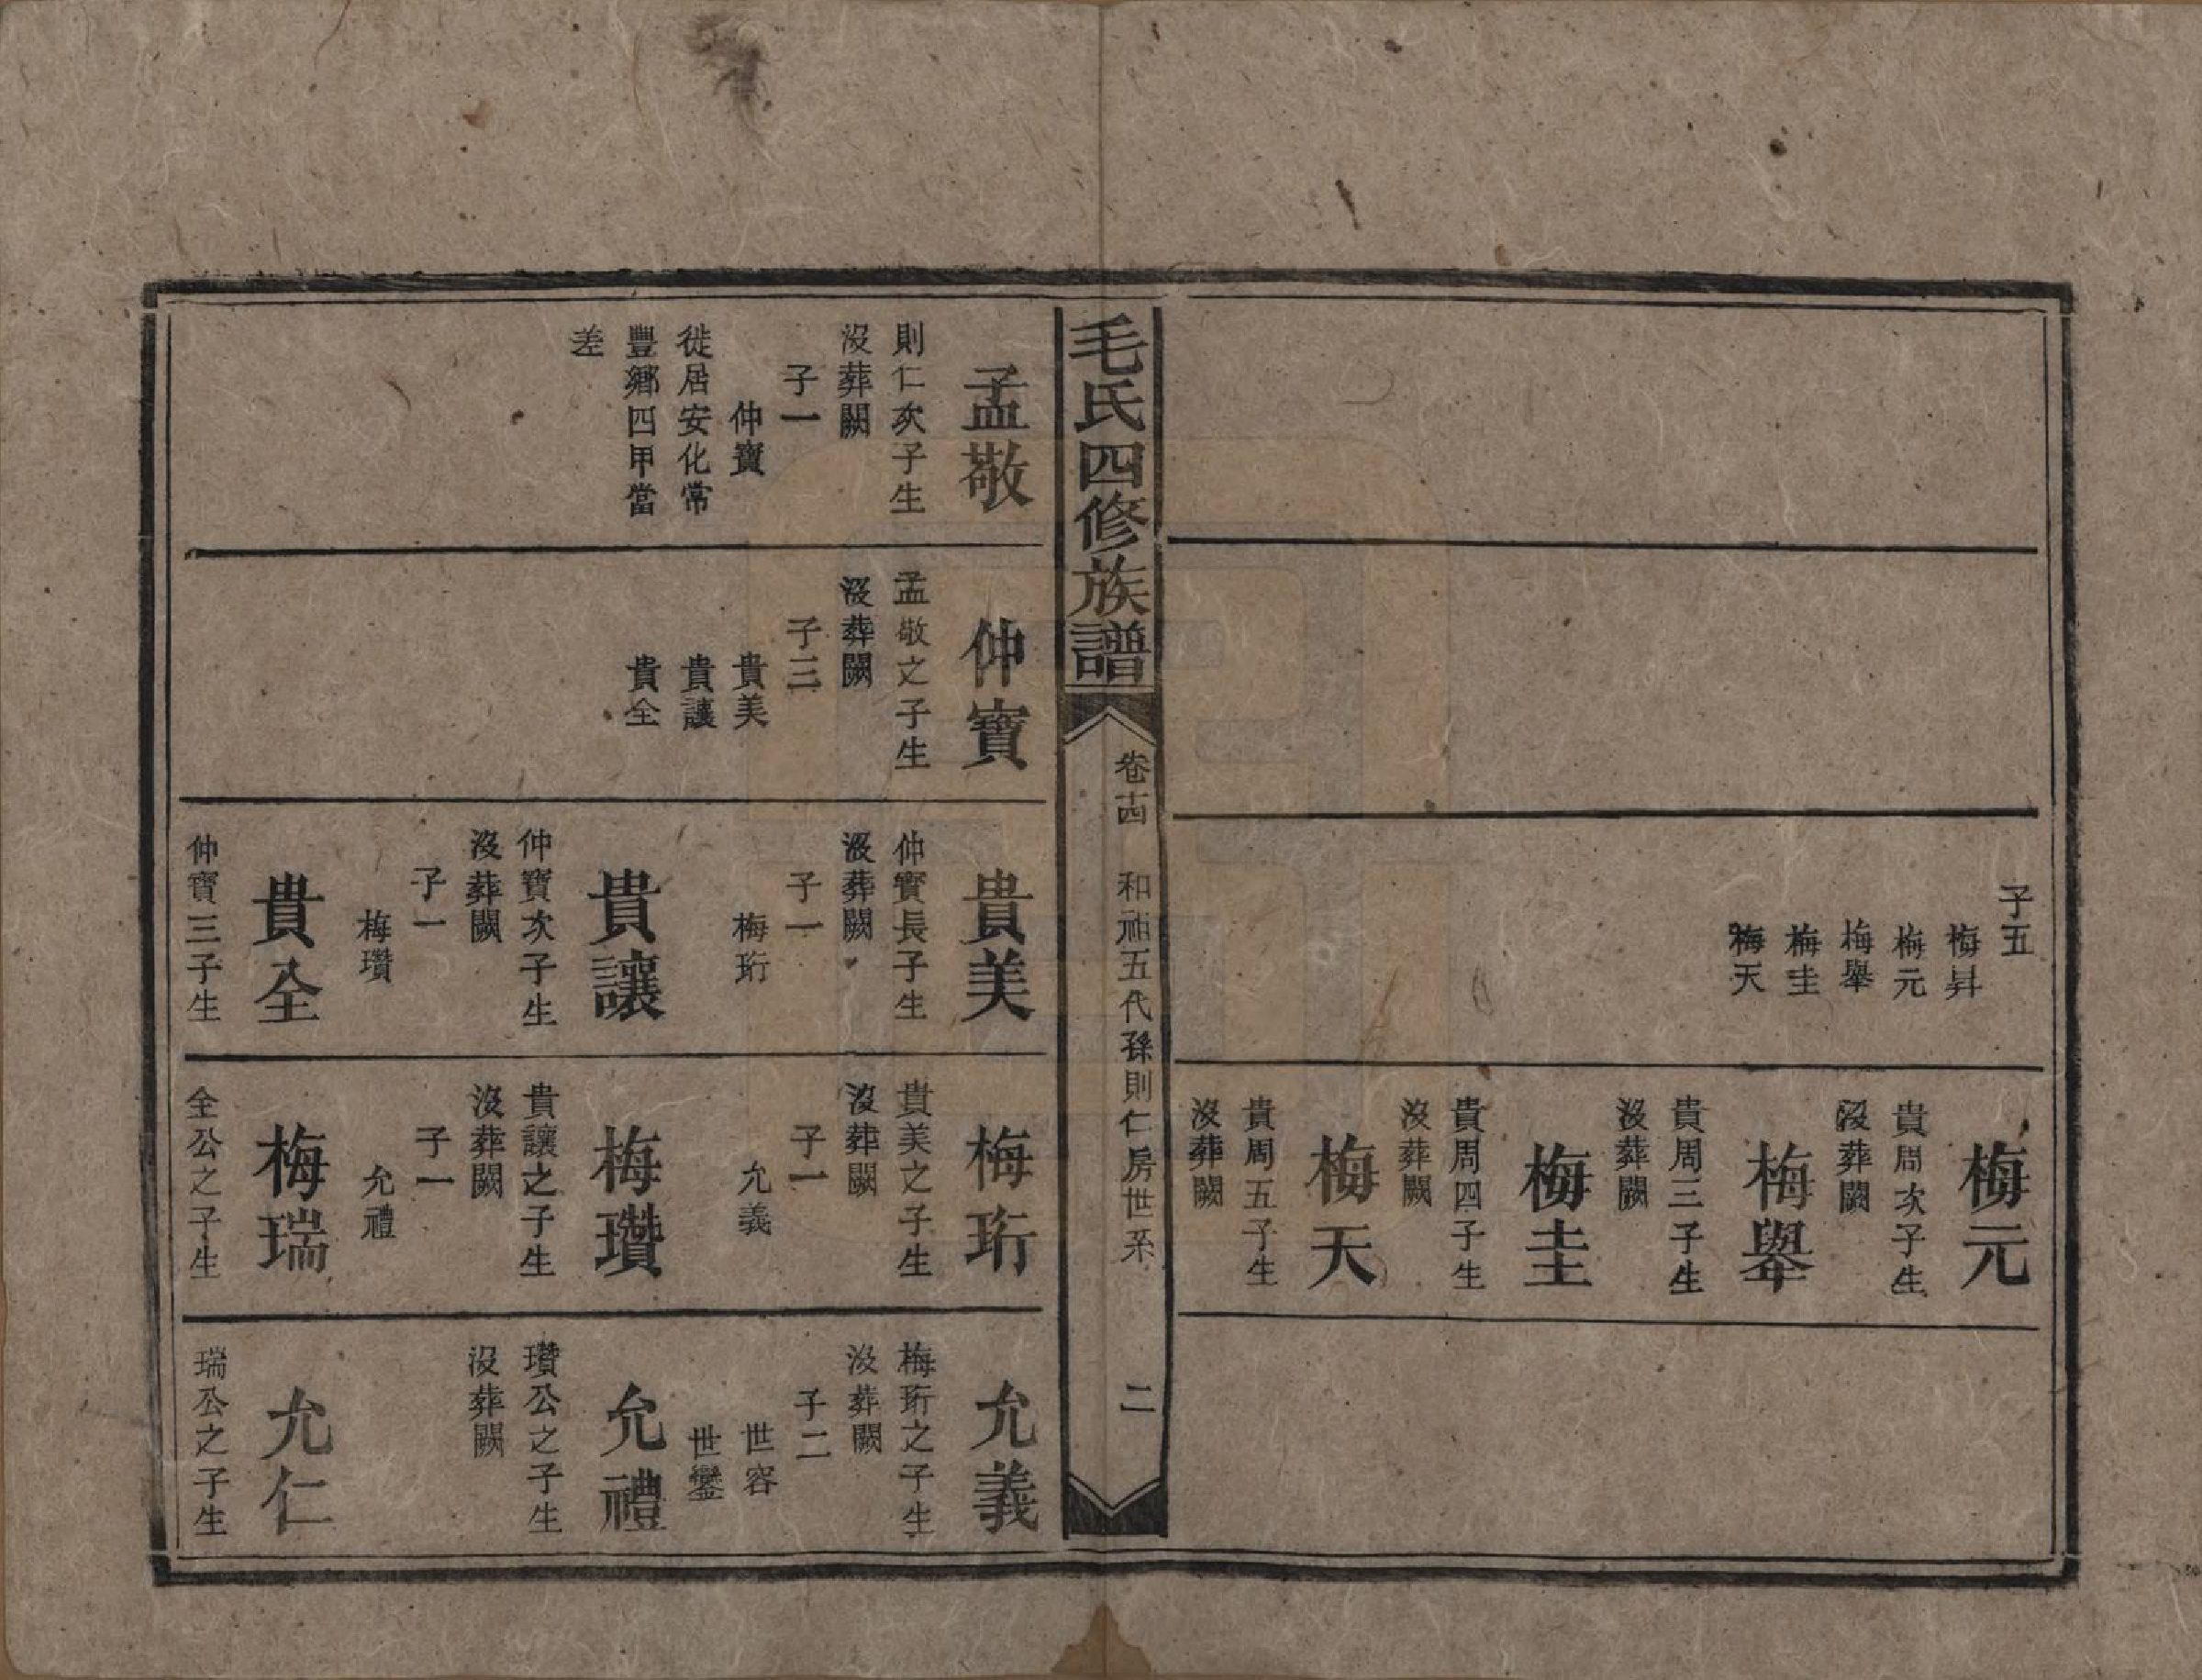 子五
梅昇
梅元
梅舉
梅圭
梅天
梅元
貴周次子生
沒葬闕
梅舉
貴周三子生
沒葬闕
梅圭
貴周四子生
沒葬闕
梅天
貴周五子生
沒葬闕
毛氏四修族譜
卷十四
和祖五代孫則仁房世系
二
孟敬
則仁次子生
沒葬闕
子一
仲寶
徙居安化常
豐鄉四甲當
差
仲寶
孟敬之子生
沒葬闕
子三
貴美
貴讓
貴全
貴美
仲寶長子生
沒葬闕
子一
梅珩
貴讓
仲寶次子生
沒葬闕
子一
梅瓚
貴全
仲寶三子生
梅珩
貴美之子生
沒葬闕
子一
允義
梅瓚
貴讓之子生
沒葬闕
子一
允禮
梅瑞
全公之子生
允義
梅珩之子生
沒葬闕
子二
世容
世鑾
允禮
瓚公之子生
沒葬闕
允仁
瑞公之子生